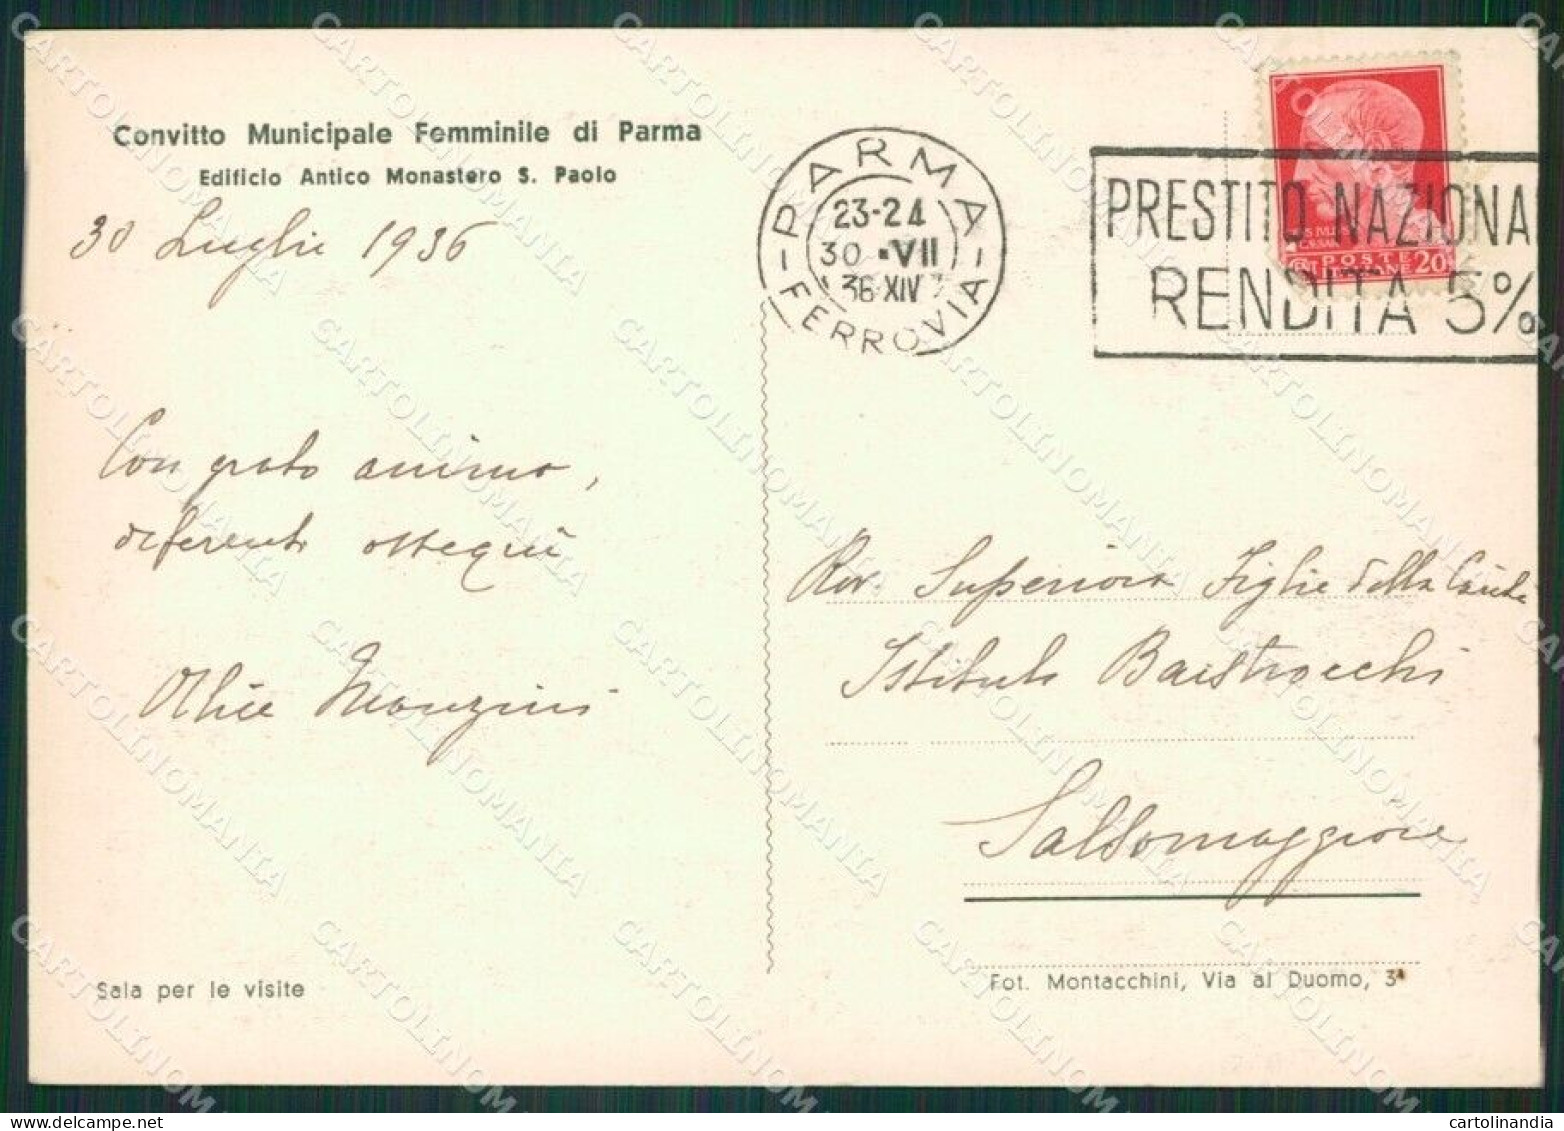 Convitto Municipale Femminile di Parma
Edificio Antico Monastero S. Paolo
30 Luglio 1936
Con grato animo,
deferenti ossequi
Manzini
Sala per le visite
PARMA
23-24
30 · VII
36 XIV
FERROVIA
PRESTITO NAZIONA
RENDITA 5%
POSTE
20
Rev. Superiora Figlie della Carità
Istituto Baistrocchi
Salsomaggiore
Fot. Montacchini, Via al Duomo, 3ᴬ
CARTOLINOMANIA
cartolinandia